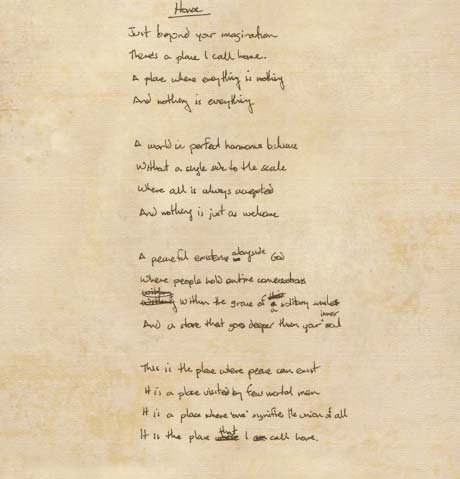 Home
Just beyond your imagination
There's a place I call home.
A place where everything is nothing
And nothing is everything
A world in perfect harmonic balance
Without a single side to the scale
Where all is always accepted
And nothing is just as welcome
A peaceful existence alongside God
Where people hold entire conversations
Within the grave of a solitary smile
And a stare that goes deeper then your inner soul
This is the place where peace can exist
It is a place visited by few mortal men
It is a place where 'one' signifies the union of all
It is the place that I call home.